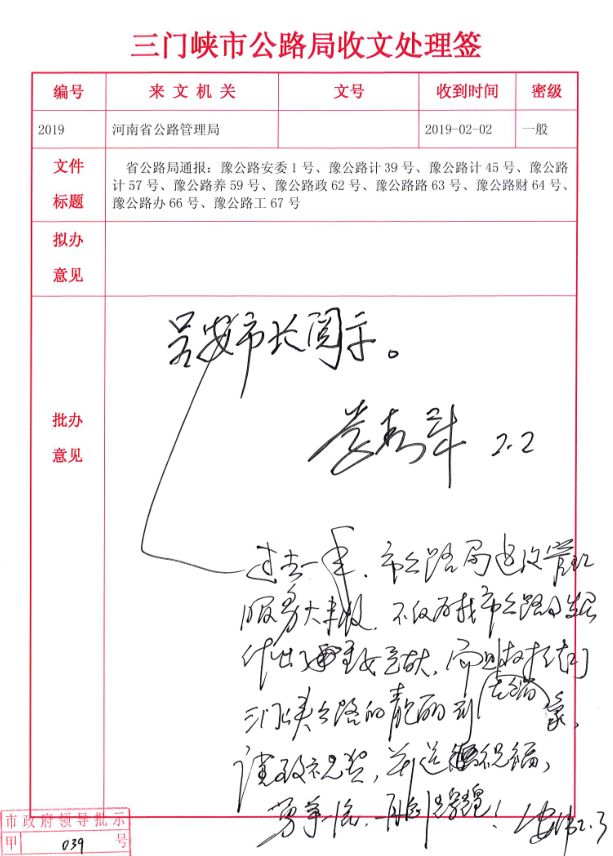 三门峡市公路局收文处理签
编号 来文机关 文号 收到时间 密级
2019 河南省公路管理局 2019-02-02 一般
文件标题 省公路局通报：豫公路安委1号、豫公路计39号、豫公路计45号、豫公路
计57号、豫公路养59号、豫公路政62号、豫公路路63号、豫公路财64号、
豫公路办66号、豫公路工67号
拟办意见
批办意见
呈安市长阅示。
2.2
过去一年，市公路局
不仅 市公路
付出 贡献，而且
三门峡公路的靓丽
谨致祝贺，并送 祝福，
勇争一流，再创 ！ 2.3
市政府领导批示
甲 039 号